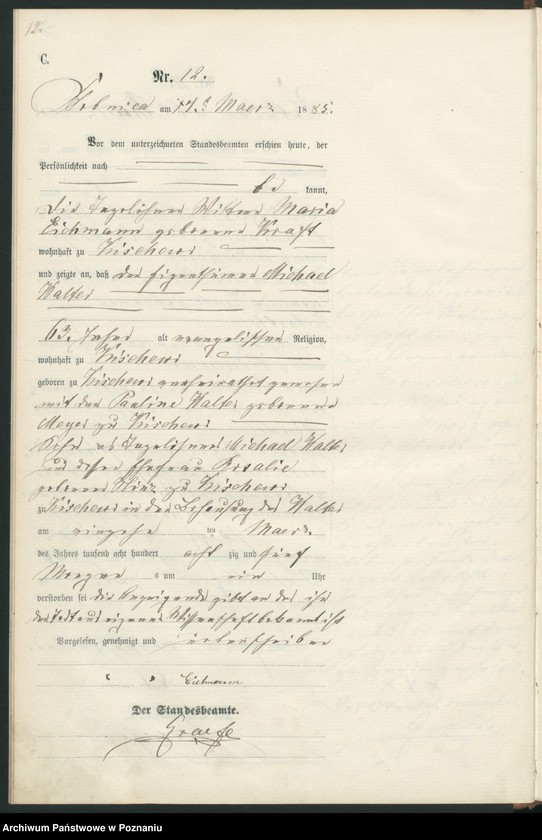 12.
C.
Nr. 12.
am 17ᵗ Maerz 1885.
Vor dem unterzeichneten Standesbeamten erschien heute, der
Persönlichkeit nach
be kannt,
die Tagelöhner Wittwe Maria
Eichmann geborene Kraft
wohnhaft zu
und zeigte an, daß der Eigenthümer Michael
Walter
63 Jahre alt evangelischer Religion,
wohnhaft zu
geboren zu verheirathet gewesen
mit der Pauline Walter geborene
Meyer zu
Sohn des Tagelöhners Michael Walter
und dessen Ehefrau Rosalie
geborene zu
zu in der Behausung des Walter
am ten Maerz
des Jahres tausend acht hundert acht zig und fünf
Morgens um ein Uhr
verstorben sei die Anzeigende gibt an daß ihr
der Tod aus eigener Wissenschaft bekannt ist
Vorgelesen, genehmigt und unterschrieben
Eichmann
Der Standesbeamte.
Graefe
Archiwum Państwowe w Poznaniu